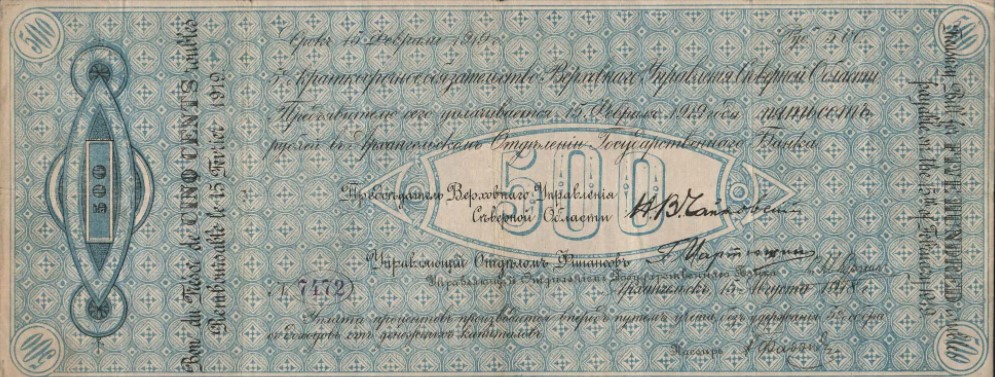 Срокъ 15 Февраля 1919 г.
5% Краткосрочное обязательство Верховнаго Управленія Сѣверной Области
Предъявителю сего уплачивается 15 Февраля 1919 года пятьсотъ
рублей въ Архангельскомъ Отдѣленіи Государственнаго Банка.
500
Верховнаго Управленія
Сѣверной Области
Н.В. Чайковскій
Управляющій Отдѣломъ Финансовъ
Управляющій Отдѣленіемъ Государственнаго Банка
7472
Архангельскъ, 15 Августа 1918 г.
Уплата процентовъ производится впередъ путемъ учета, безъ удержанія
съ доходовъ отъ денежныхъ капиталовъ.
Кассиръ
500
Bon du Trésor de CINQ CENTS roubles
Remboursable le 15 Février 1919.
Treasury Bill for FIVE HUNDRED
payable on the 15 th of February 1919
500
500
500
500